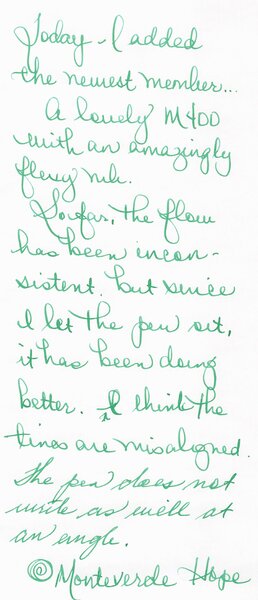 Today - I added
the newest member...
A lovely M400
with an amazingly
flexy nib.
So far, the flow
has been incon-
sistent, but since
I let the pen sit,
it has been doing
better. I think the
tines are misaligned.
The pen does not
write as well at
an angle.
Monteverde Hope